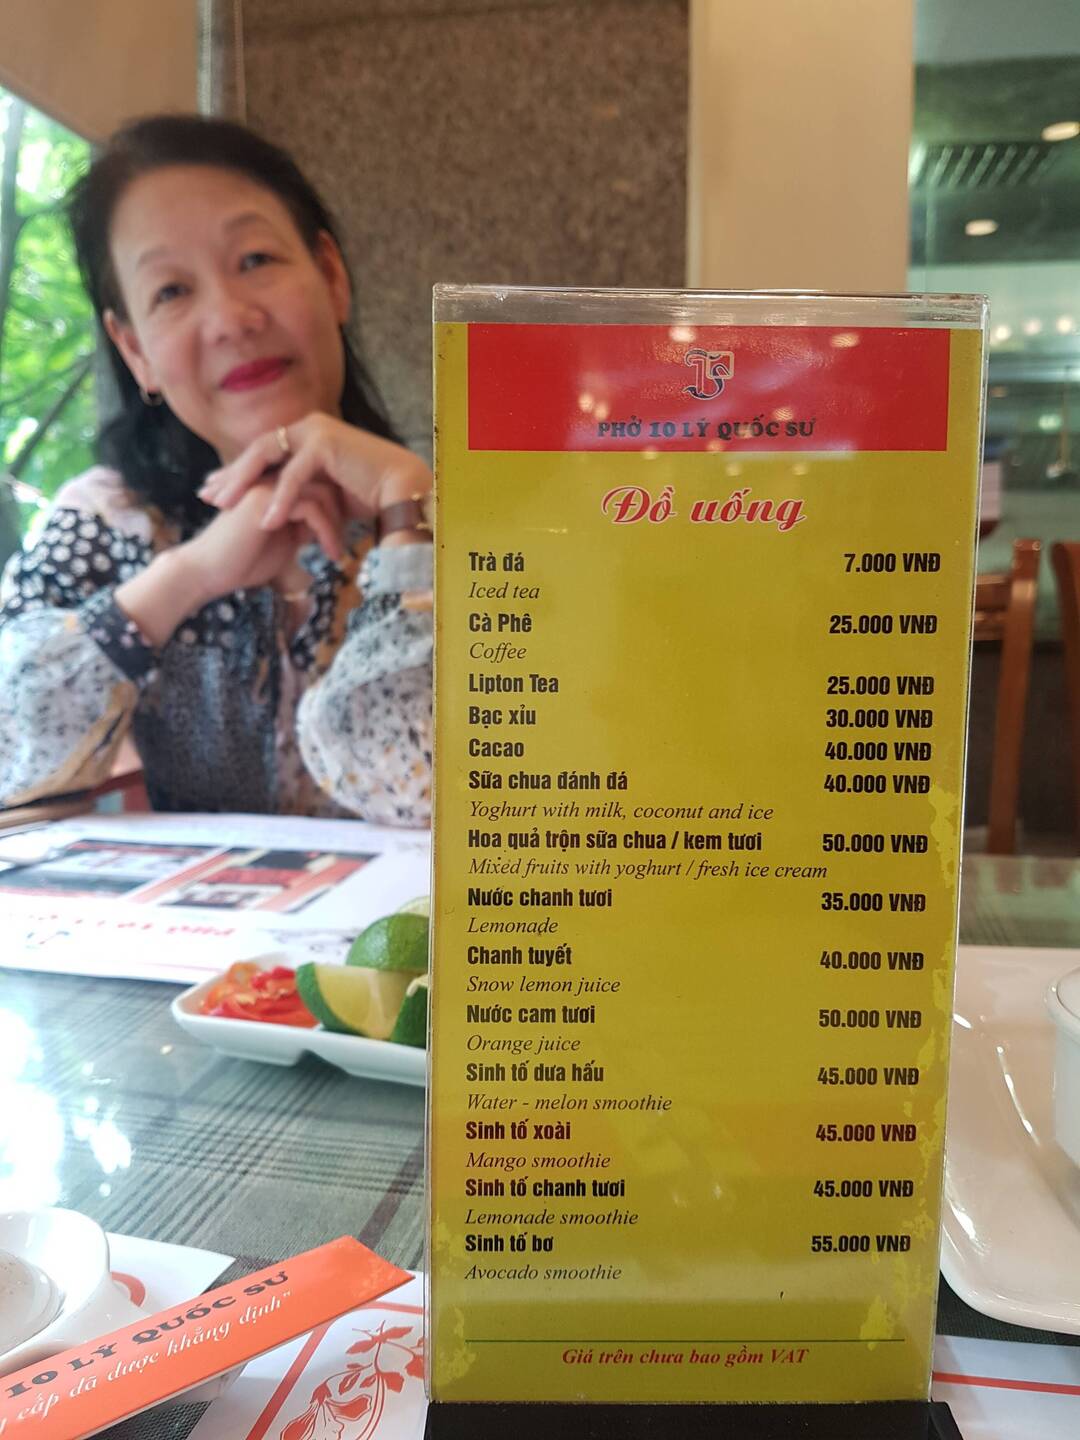 PHỞ 10 LÝ QUỐC SƯ
Đồ uống
Trà đá 7.000 VNĐ
Iced tea
Cà Phê 25.000 VNĐ
Coffee
Lipton Tea 25.000 VNĐ
Bạc xỉu 30.000 VNĐ
Cacao 40.000 VNĐ
Sữa chua đánh đá 40.000 VNĐ
Yoghurt with milk, coconut and ice
Hoa quả trộn sữa chua / kem tươi 50.000 VNĐ
Mixed fruits with yoghurt / fresh ice cream
Nước chanh tươi 35.000 VNĐ
Lemonade
Chanh tuyết 40.000 VNĐ
Snow lemon juice
Nước cam tươi 50.000 VNĐ
Orange juice
Sinh tố dưa hấu 45.000 VNĐ
Water - melon smoothie
Sinh tố xoài 45.000 VNĐ
Mango smoothie
Sinh tố chanh tươi 45.000 VNĐ
Lemonade smoothie
Sinh tố bơ 55.000 VNĐ
Avocado smoothie
Giá trên chưa bao gồm VAT
10 LÝ QUỐC SƯ
cấp đã được khẳng định"